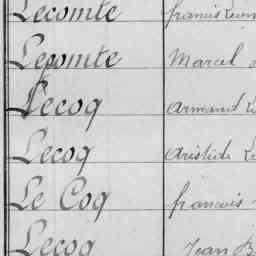 Lecomte Francis
Lecomte Marcel
Lecoq Armand
Lecoq Aristide
Le Coq francois
Lecoq Jean B